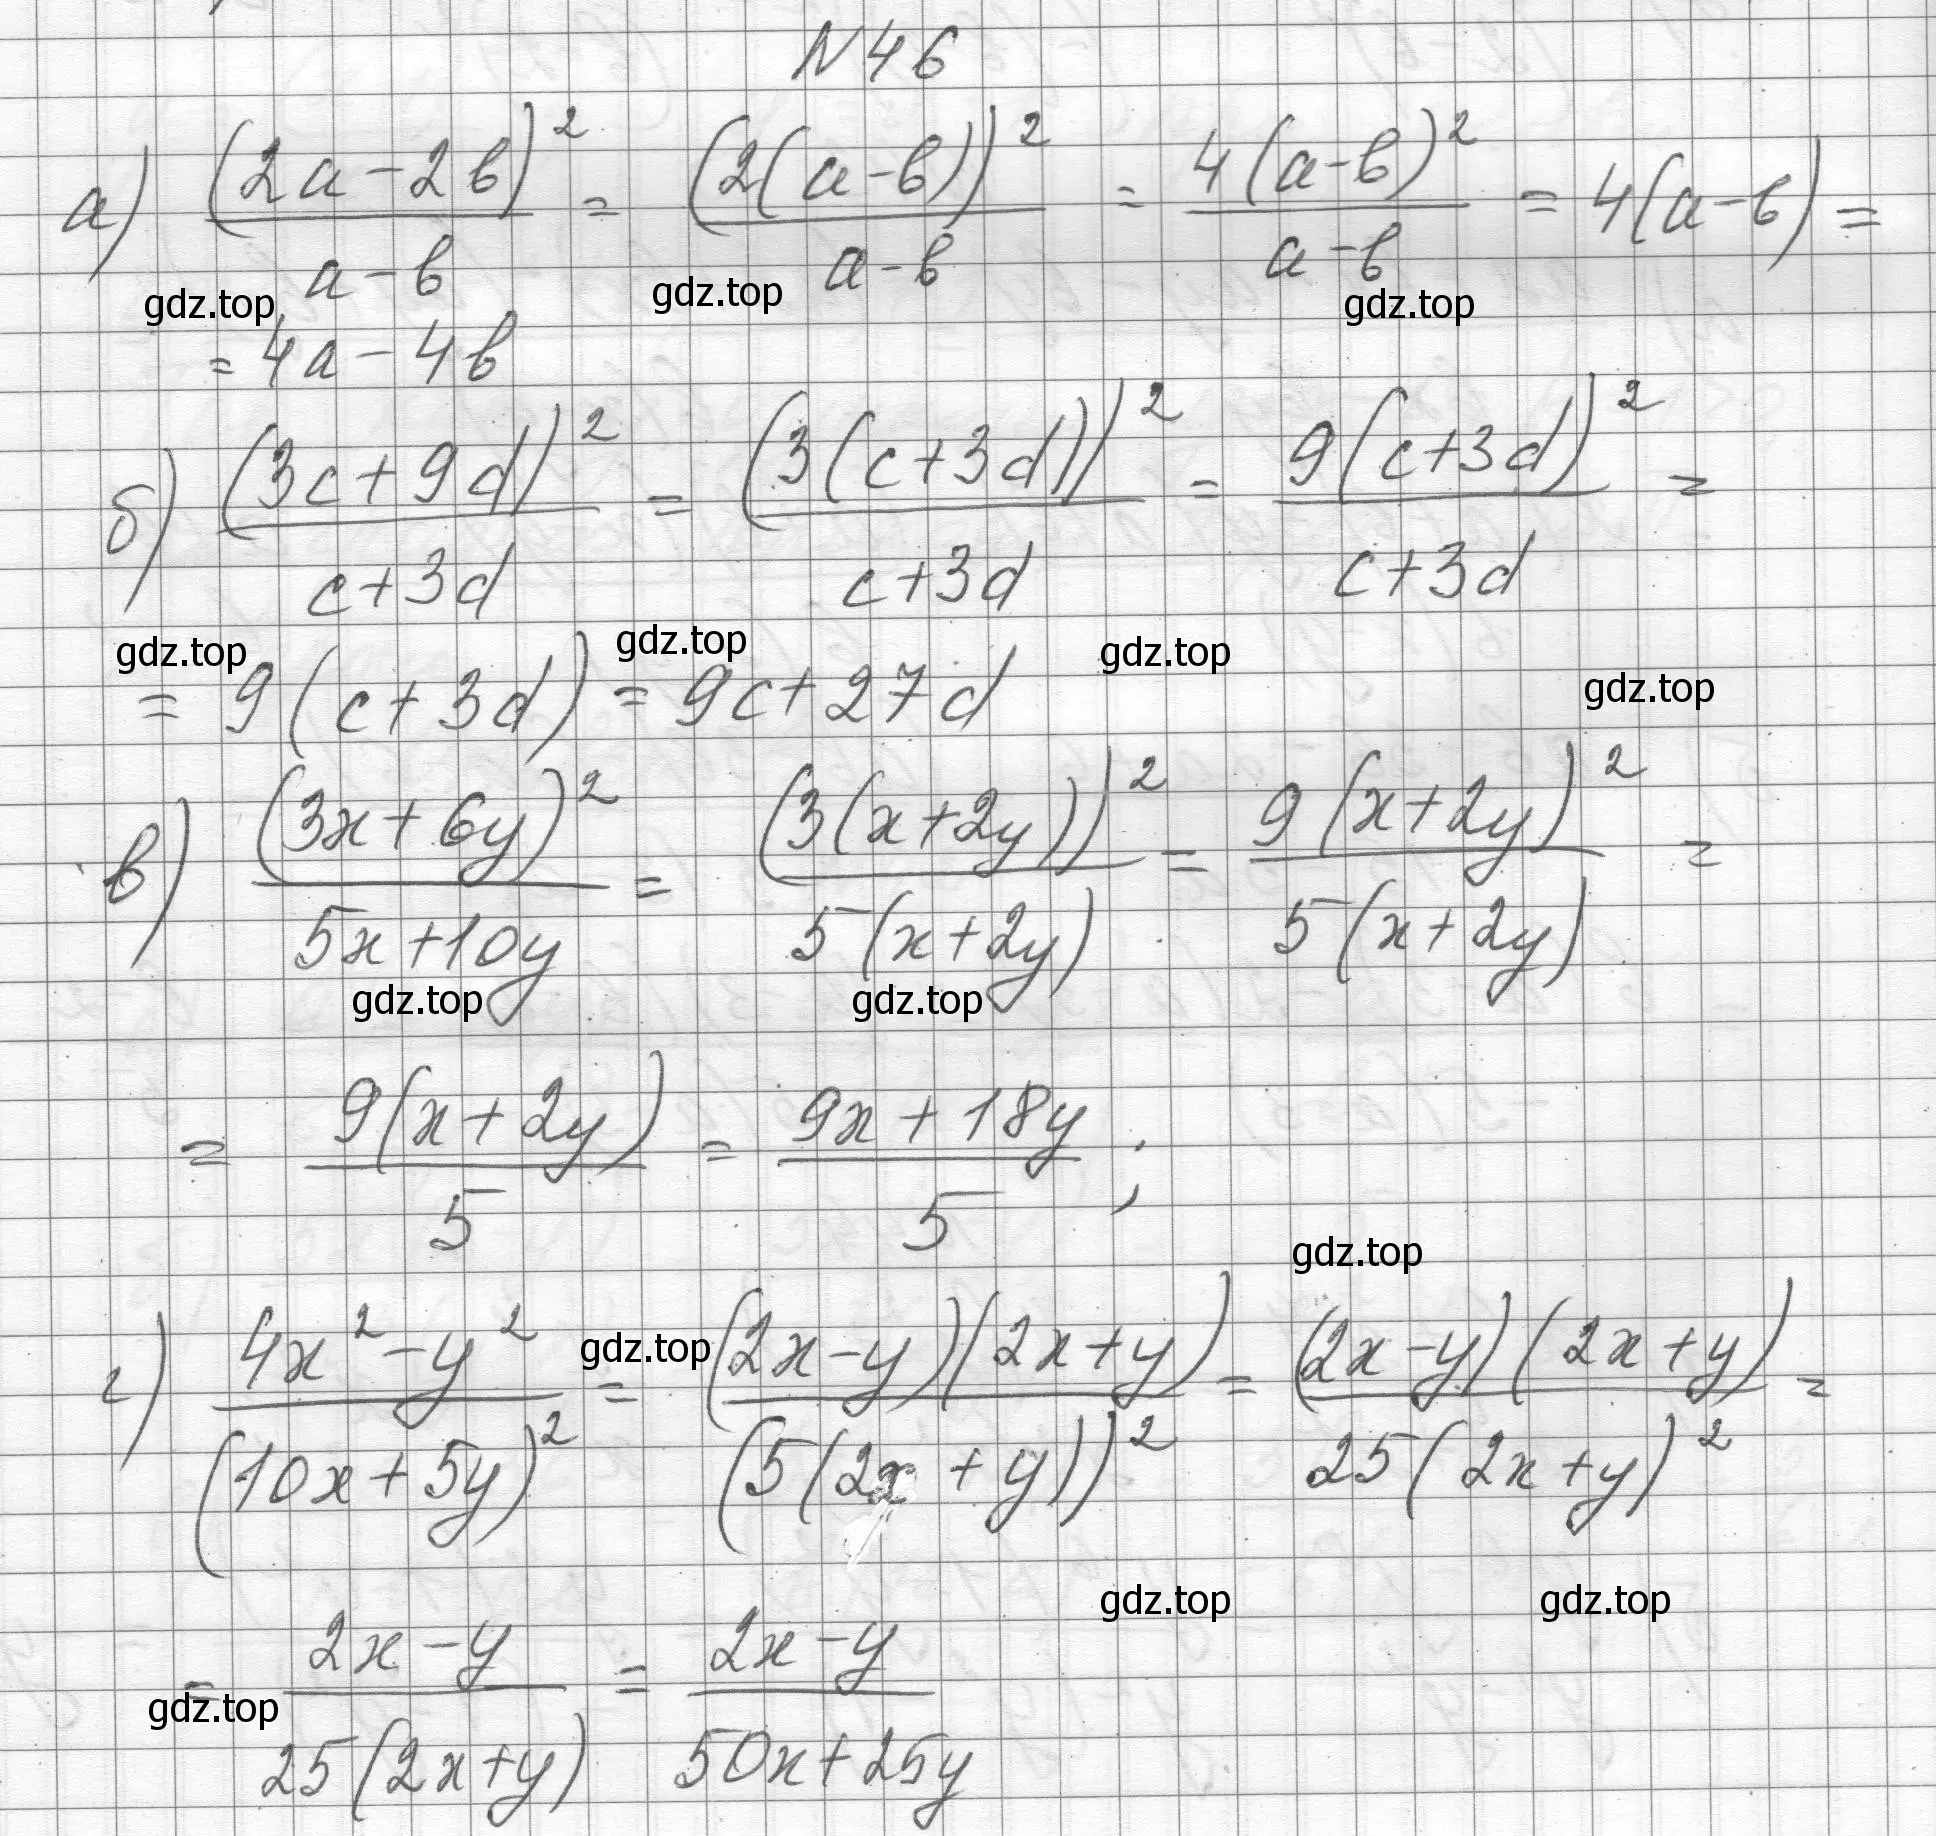 N 46
а) (2a-2b)²/(a-b) = (2(a-b))²/(a-b) = 4(a-b)²/(a-b) = 4(a-b) =
gdz.top gdz.top gdz.top
= 4a-4b
б) (3c+9d)²/(c+3d) = (3(c+3d))²/(c+3d) = 9(c+3d)²/(c+3d) =
gdz.top gdz.top gdz.top gdz.top
= 9(c+3d) = 9c+27d
в) (3x+6y)²/(5x+10y) = (3(x+2y))²/(5(x+2y)) = 9(x+2y)²/(5(x+2y)) =
gdz.top gdz.top
= 9(x+2y)/5 = (9x+18y)/5 ;
gdz.top
г) (4x²-y²)/(10x+5y)² = (2x-y)(2x+y)/(5(2x+y))² = (2x-y)(2x+y)/(25(2x+y)²) =
gdz.top
gdz.top gdz.top
= (2x-y)/(25(2x+y)) = (2x-y)/(50x+25y)
gdz.top